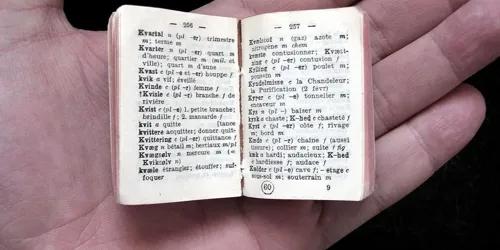 — 256 —
Kvartal n (pl -er) trimestre
m; terme m
Kvarter n (pl -er) quart m
d'heure; quartier m (mil. et
ville); quart m d'aune
Kvast c (pl -e et -er) houppe f
kvik a vif; éveillé
Kvinde c (pl -r) femme f
Kvisle c (pl -r) branche f de
rivière
Kvist c (pl -e) 1. petite branche;
brindille f; 2. mansarde f
kvit a quitte [tance
kvittere acquitter; donner quit-
Kvittering c (pl -er) quittance f
Kvæg n bétail m; bestiaux m/pl
Kvægsølv n mercure m (=
Kviksølv n)
kvæle étrangler; étouffer; suf-
foquer
— 257 —
Kvælstof n (gaz) azote m;
nitrogène m chem
kvæste contusionner; Kvæst-
ning c (pl -er) contusion f
Kylling c (pl -er) poulet m;
poussin m
Kyndelmisse c la Chandeleur;
la Purification (2 févr)
Kyper c (pl -e) tonnelier m;
encaveur m
Kys n (pl -) baiser m
kysk a chaste; K-hed c chasteté f
Kyst c (pl -er) côte f; rivage
m; bord m
Kæde c (pl -r) chaîne f (aussi
fig); collier m; suite f
kæk a hardi; audacieux; K-hed
c hardiesse f; audace f
Kælder c (pl -e) cave f; - etage c
sous-sol m; souterrain m
60 9